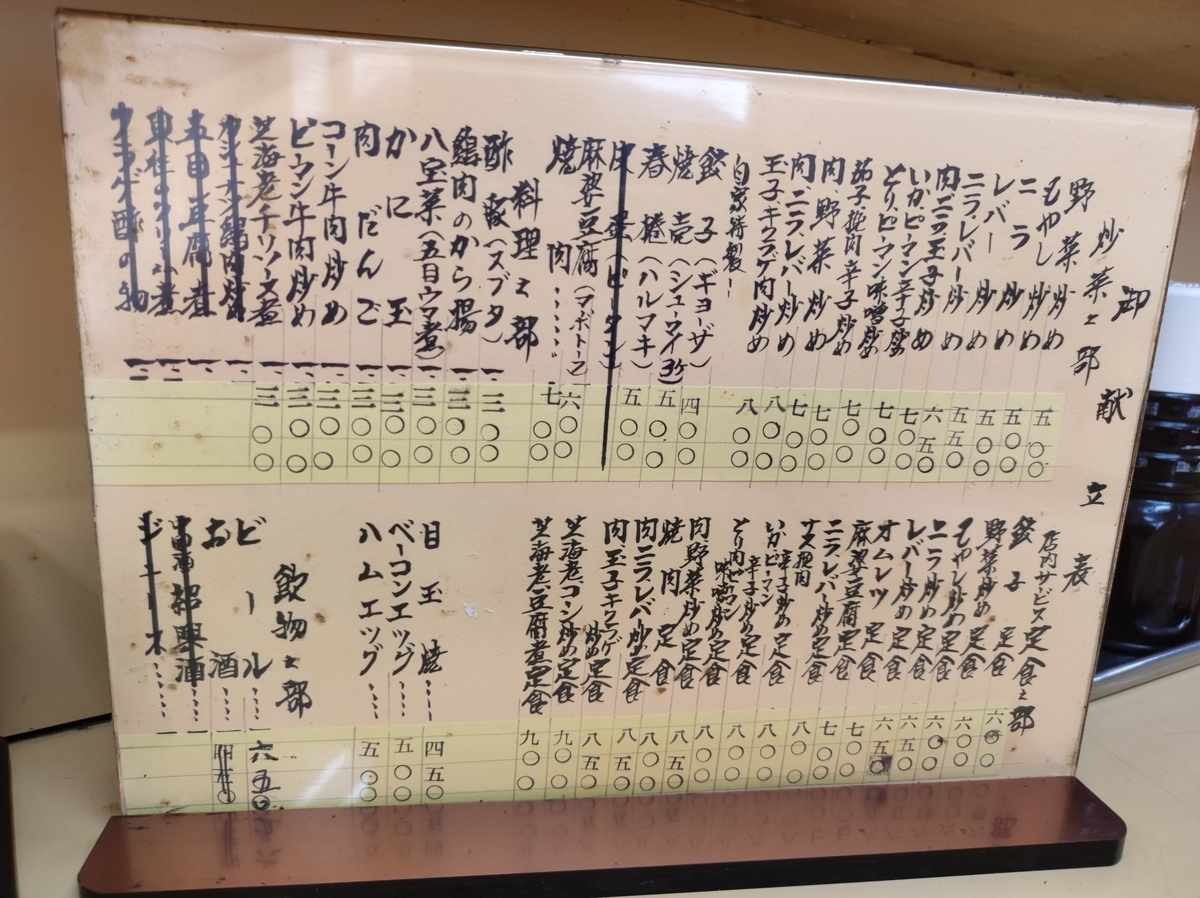 御献立表
炒菜之部
野菜炒め 五〇〇
もやし炒め 五〇〇
ニラ炒め 五〇〇
レバー炒め 五〇〇
ニラ、レバー炒め 五五〇
肉ニラ玉子炒め 六五〇
いか、ピーマン辛子炒め 七〇〇
とり、ピーマン味噌炒め 七〇〇
茄子、挽肉辛子炒め 七〇〇
肉、野菜炒め 七〇〇
肉、ニラ、レバー炒め 七〇〇
玉子、キクラゲ肉炒め 八〇〇
自家特製 八〇〇
餃子(ギョーザ) 四〇〇
焼売(シューマイ3ケ) 五〇〇
春捲(ハルマキ) 五〇〇
皮蛋(ピータン)
麻婆豆腐(マーボトーフ) 六〇〇
焼肉 七〇〇
料理之部
酢豚(スブタ) 一、三〇〇
鶏肉のから揚 一、三〇〇
八宝菜(五目ウマ煮) 一、三〇〇
かに玉 一、三〇〇
肉だんご 一、三〇〇
コーン牛肉炒め 一、三〇〇
ピーマン牛肉炒め 一、三〇〇
芝海老チリソース煮 一、三〇〇
店内サービス定食之部
餃子定食 六〇〇
野菜炒め定食 六〇〇
もやし炒め定食 六〇〇
ニラ炒め定食 六〇〇
レバー炒め定食 六五〇
オムレツ定食 六五〇
麻婆豆腐定食 七〇〇
ニラ、レバー炒め定食 七〇〇
ナス挽肉辛子炒め定食 八〇〇
いか、ピーマン辛子炒め定食 八〇〇
とり肉ピーマン味噌炒め定食 八〇〇
肉野菜炒め定食 八〇〇
焼肉定食 八五〇
肉ニラ、レバー炒め定食 八〇〇
肉玉子キクラゲ炒め定食 八五〇
芝海老コーン炒め定食 九〇〇
芝海老豆腐煮定食 九〇〇
目玉焼 四五〇
ベーコンエッグ 五〇〇
ハムエッグ 五〇〇
飲物之部
ビール 六五〇
お酒
紹興酒
ジュース